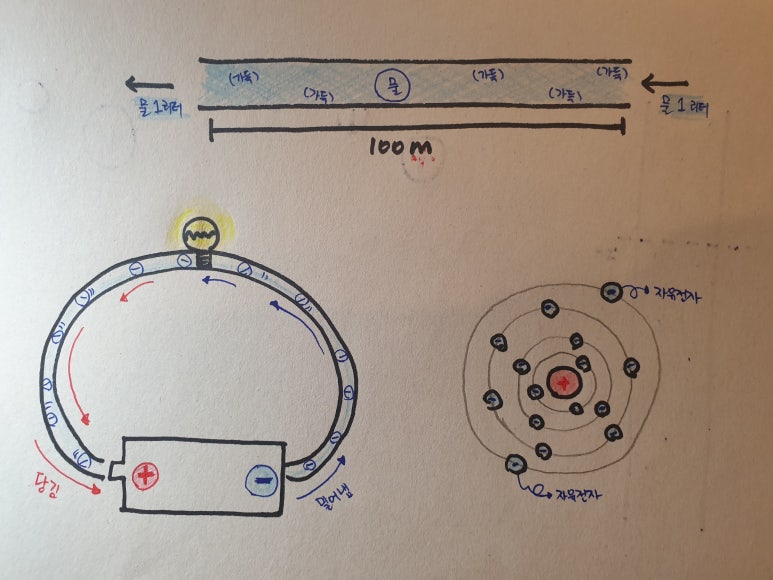 (가득)
(가득)
물
(가득)
(가득)
(가득)
물 1리터
물 1리터
100m
자유전자
+
+
-
당김
밀어냄
자유전자